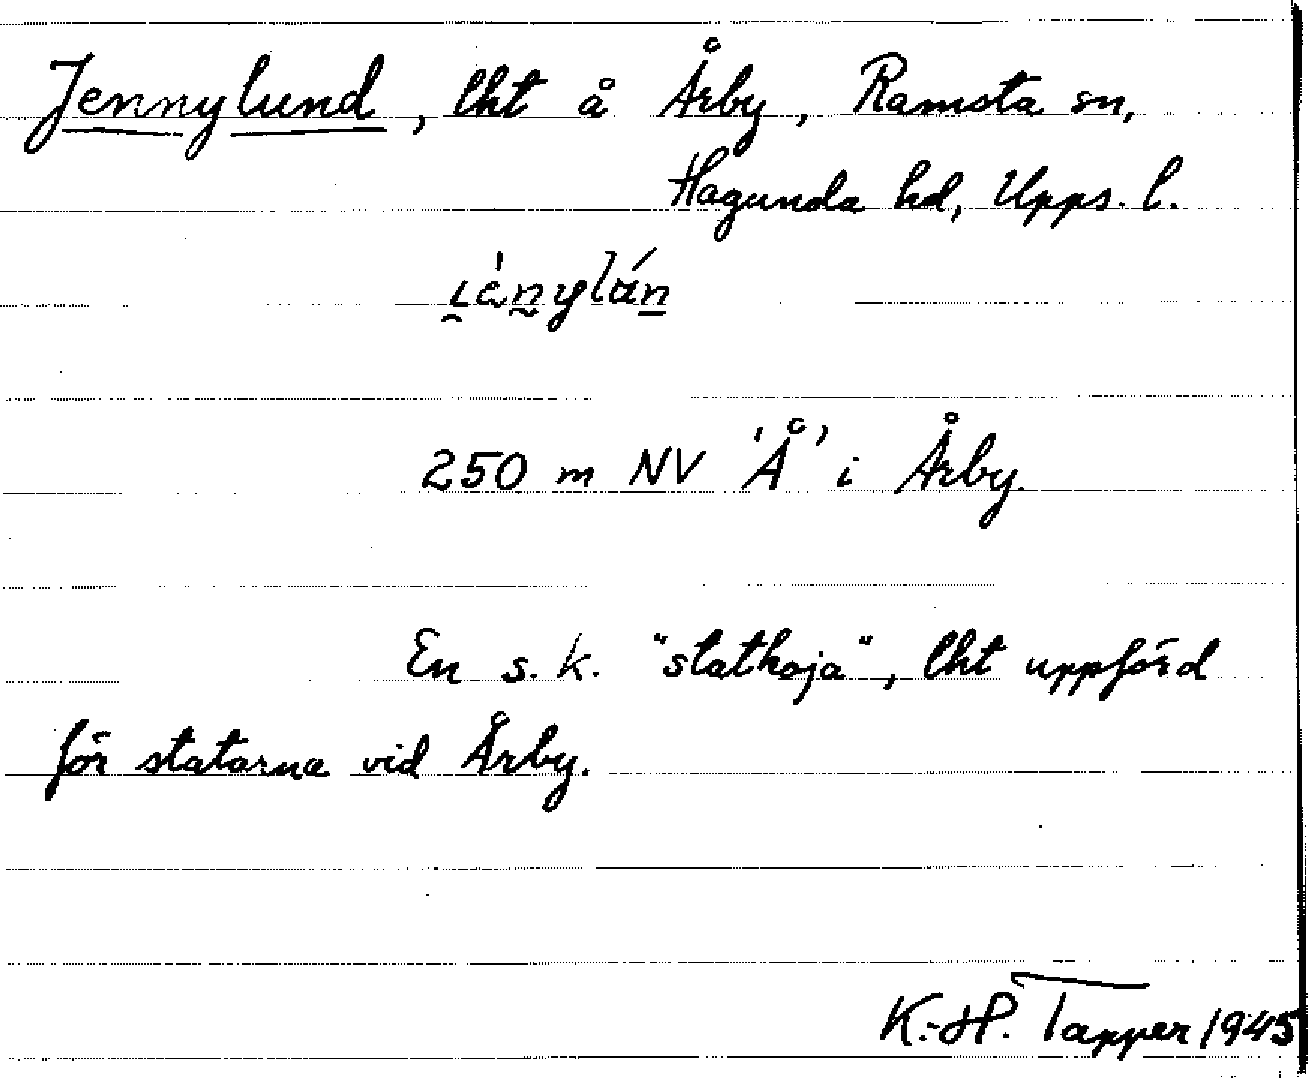 Jennylund, lht å Årby, Ramsta sn,
Hagunda hd, Upps. l.
250 m NV 'Å' i Årby.
En s. k. "statkoja", lht uppförd
för statarna vid Årby.
K.-H. Tapper 1945